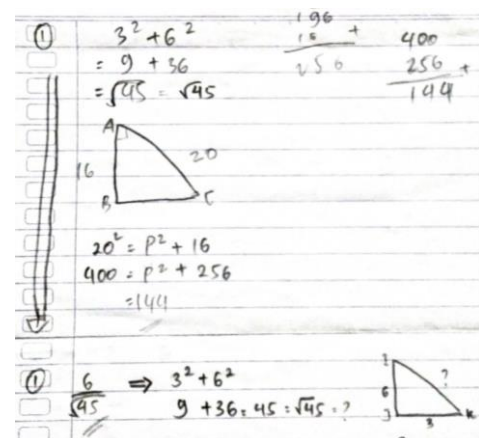 1
3² + 6²
= 9 + 36
= √45 = √45
196
16 +
256
400
256 +
144
A
16
20
B
C
20² = P² + 16
400 = P² + 256
= 144
1
6/√45 ⇒ 3² + 6²
9 + 36 = 45 = √45 = ?
I
6
?
J
3
K